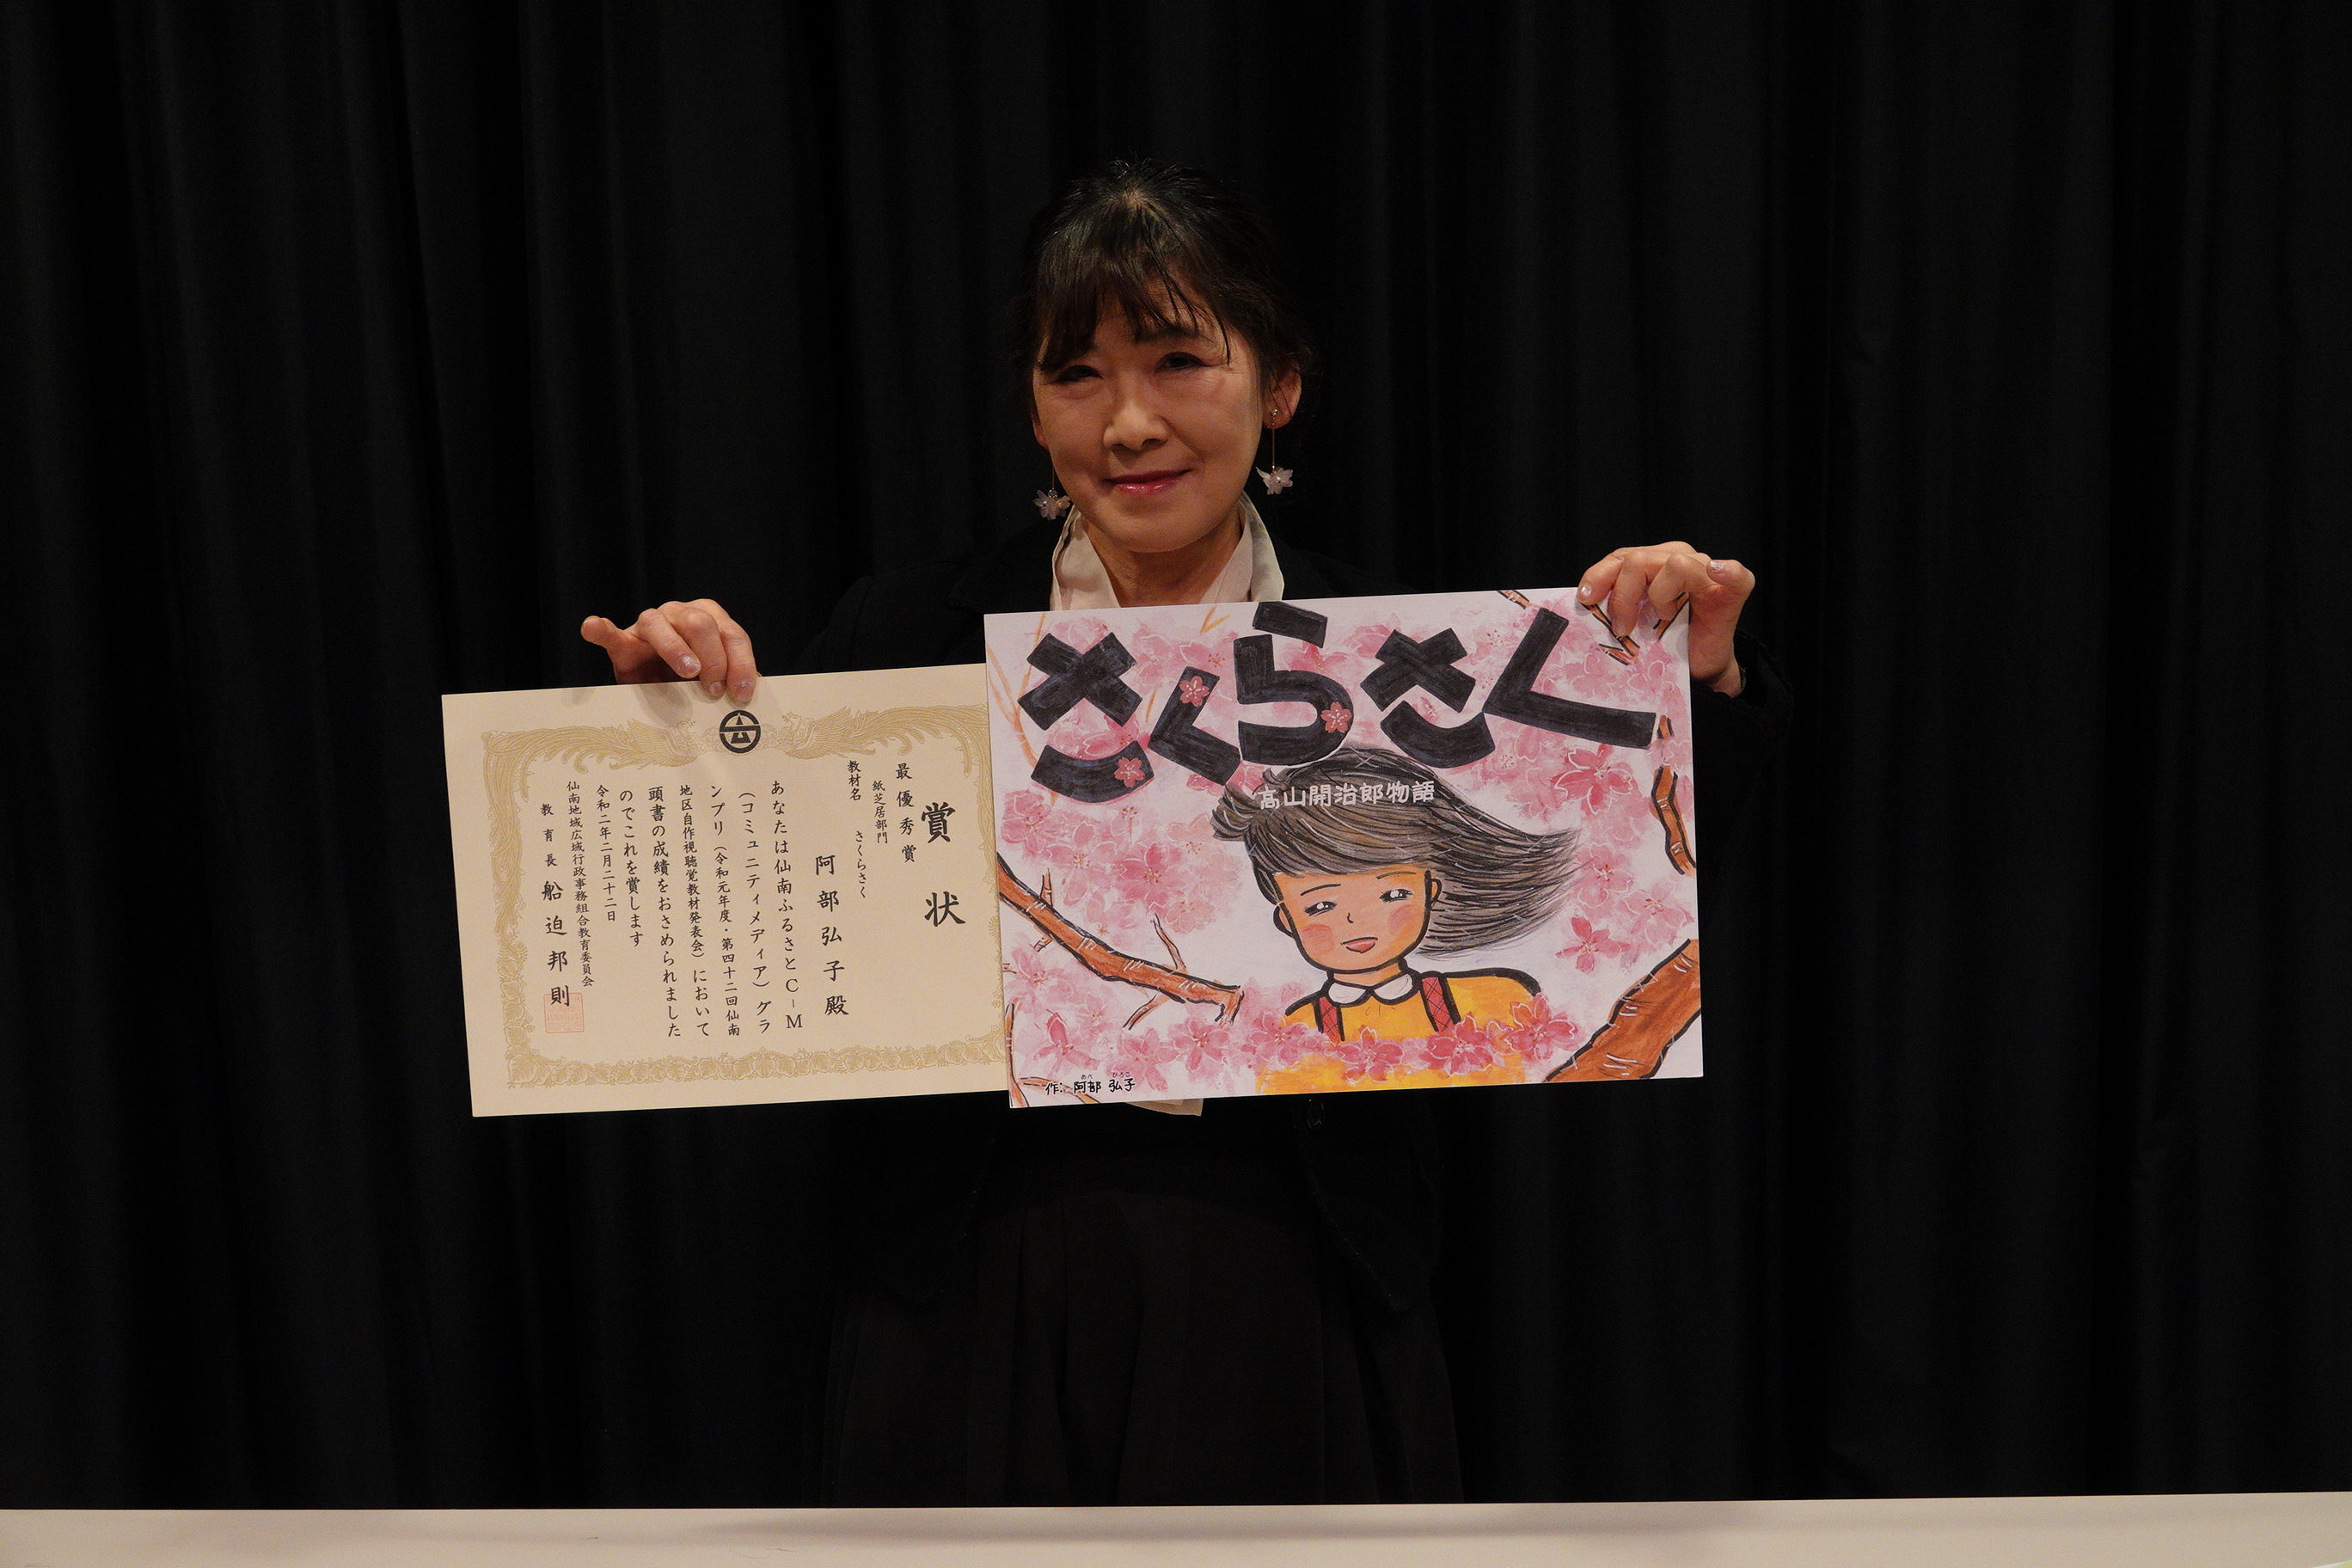 賞状
最優秀賞
紙芝居部門
教材名 さくらさく
阿部弘子殿
あなたは仙南ふるさとC-M
(コミュニティメディア)グラ
ンプリ(令和元年度・第四十二回仙南
地区自作視聴覚教材発表会)において
頭書の成績をおさめられました
のでこれを賞します
令和二年二月二十二日
仙南地域広域行政事務組合教育委員会
教育長 船迫邦則
さくらさく
高山開治郎物語
作:阿部 弘子
あべ ひろこ